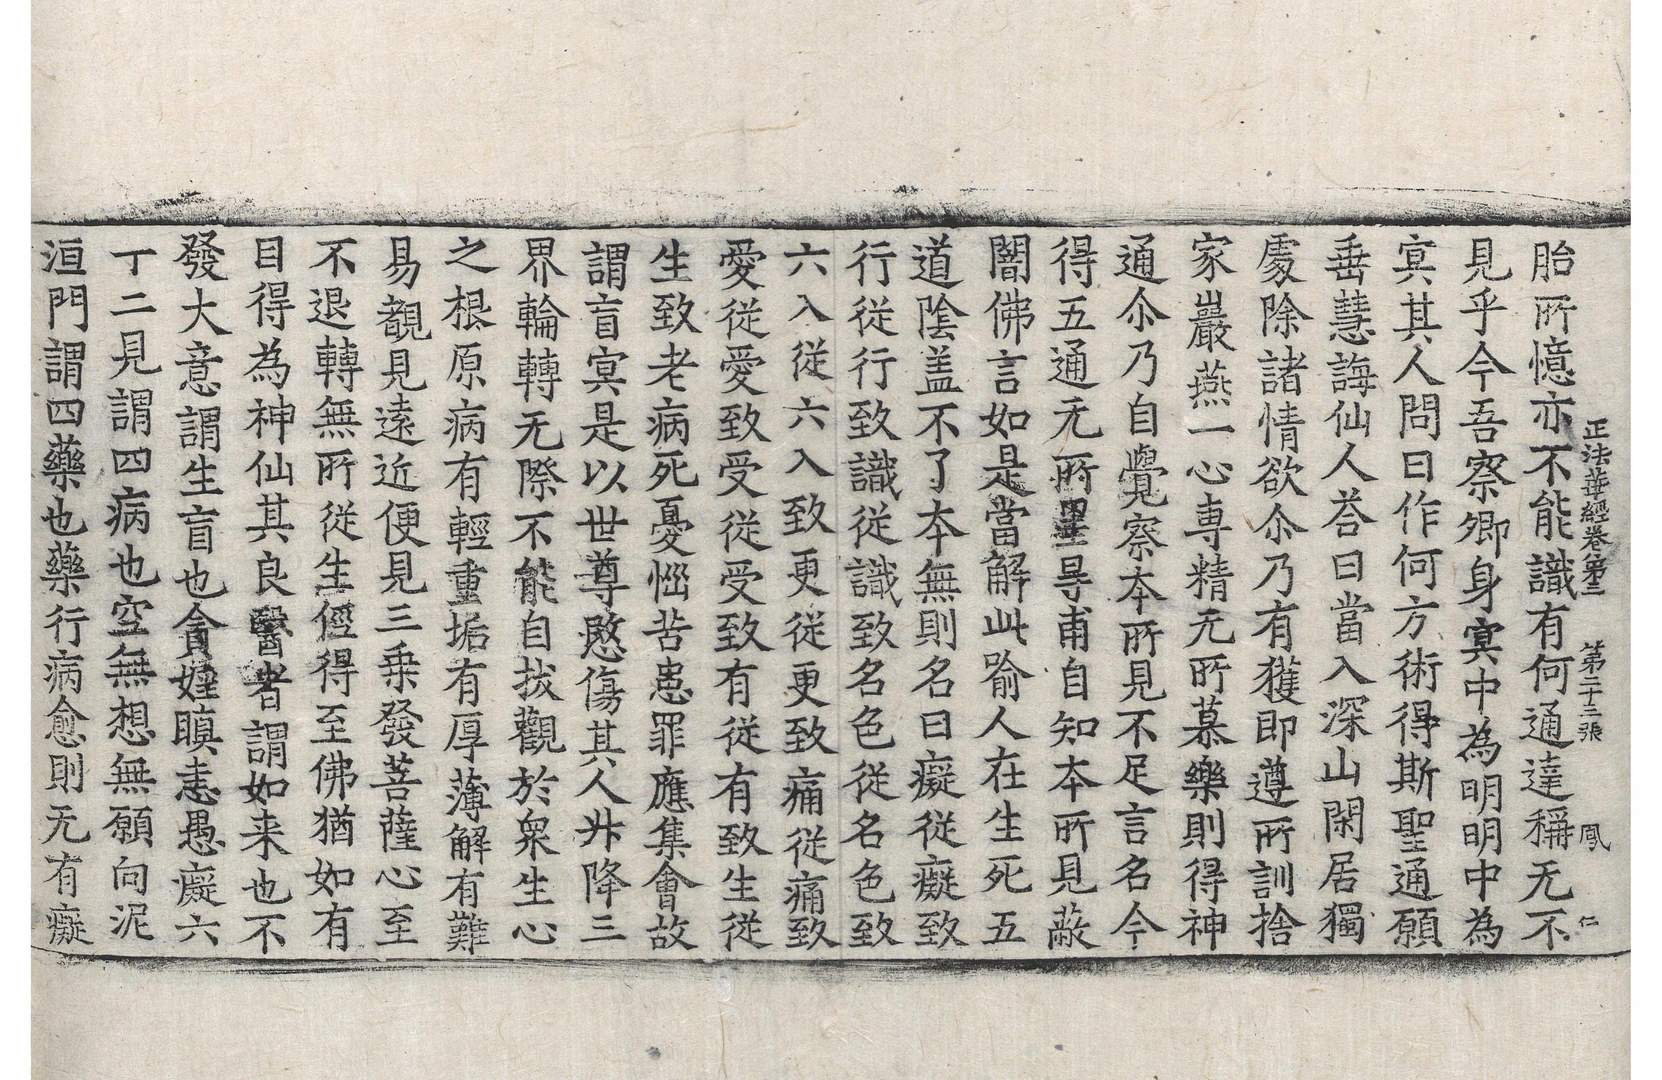 正法華經卷第三　第二十三張　鳳　仁
胎所憶亦不能識有何通達稱无不
見乎今吾察卿身冥中為明明中為
冥其人問曰作何方術得斯聖通願
垂慧誨仙人荅曰當入深山閑居獨
處除諸情欲尒乃有獲即遵所訓捨
家巖燕一心専精无所慕樂則得神
通尒乃自覺察本所見不足言名今
得五通无所罣㝵甫自知本所見蔽
闇佛言如是當解此喻人在生死五
道陰盖不了本無則名曰癡從癡致
行從行致識從識致名色從名色致
六入從六入致更從更致痛從痛致
愛從愛致受從受致有從有致生從
生致老病死憂惱苦患罪應集會故
謂盲冥是以世尊愍傷其人㪷降三
界輪轉无際不能自拔觀於衆生心
之根原病有輕重垢有厚薄解有難
易覩見遠近便見三乗發菩薩心至
不退轉無所從生徑得至佛猶如有
目得為神仙其良醫者謂如来也不
發大意謂生盲也貪婬瞋恚愚癡六
十二見謂四病也空無想無願向泥
洹門謂四藥也藥行病愈則无有癡